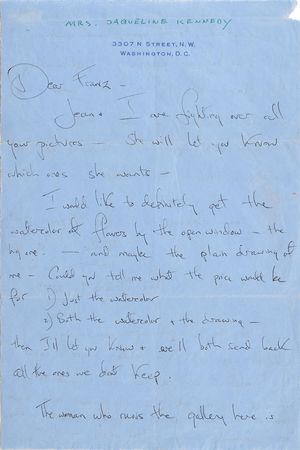 MRS. JAQUELINE KENNEDY
3307 N STREET, N.W.
WASHINGTON, D.C.
Dear Franz -
Jean + I are fighting over all
your pictures - She will let you know
which ones she wants -
I would like to definitely get the
watercolor of flowers by the open window - the
big one. - and maybe the plain drawing of
me - Could you tell me what the price would be
for 1) Just the watercolor
2) Both the watercolor + the drawing -
then I'll let you know + we'll both send back
all the ones we don't keep.
The woman who runs the gallery here is